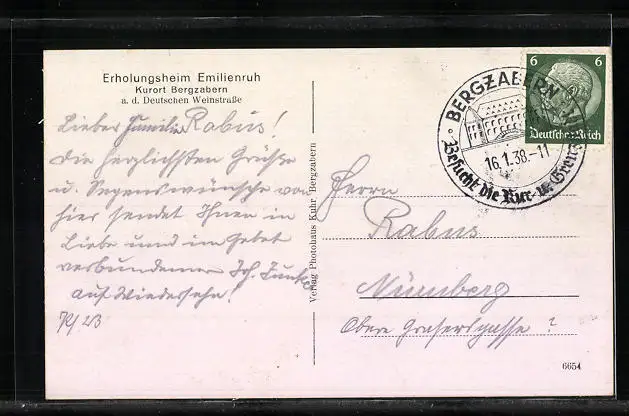 Erholungsheim Emilienruh
Kurort Bergzabern
a. d. Deutschen Weinstraße
Lieber Familie Rabus!
Die herzlichsten Grüße
u. Segenswünsche von
hier sendet Ihnen in
Liebe und im Gebet
verbundener Joh.
auf Wiedersehn!
Verlag Photohaus Kuhr Bergzabern
BERGZABERN
16.1.38.-11
Besucht die Kur- u.
6 6
Deutsches Reich
Herrn
Rabus
Nürnberg
Obere ?
6654